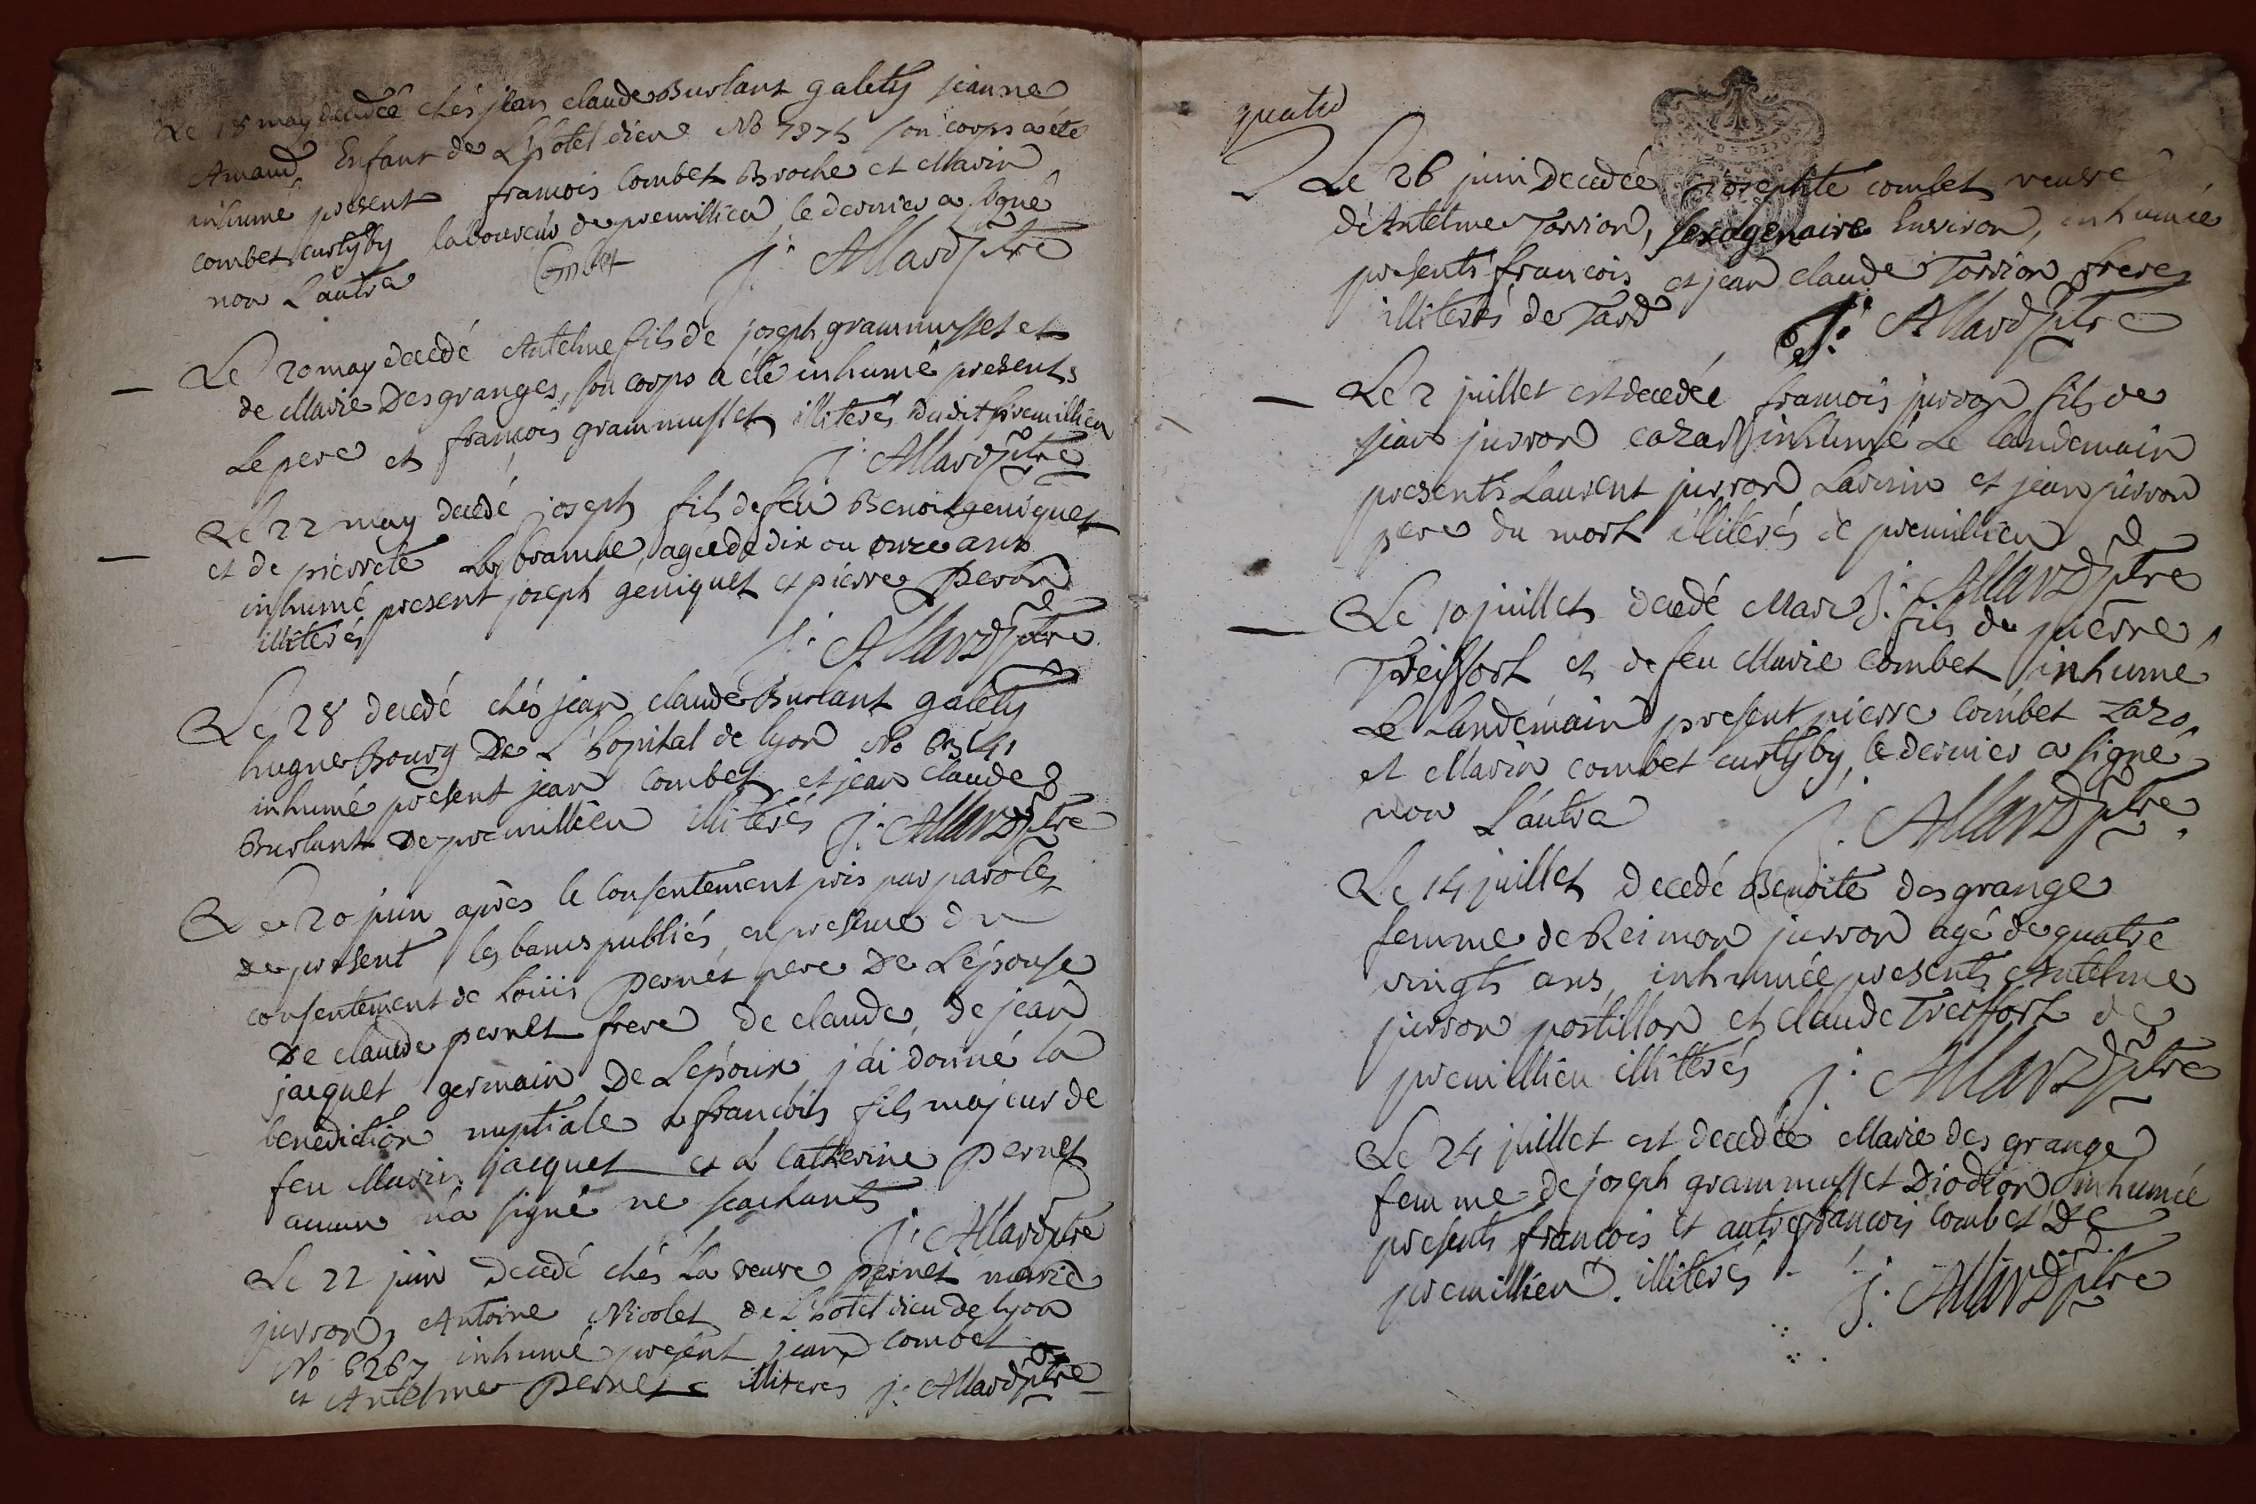 Le 18 may decedée chés jean claude Burlant galety jeanne
Amand Enfant de L'hotel dieu No 7375 son corps a été
inhumé present francois Combet Broche et Marin
combet curtyby laboureur de premillieu, le dernier a signé
non L'autre Combet j: Allard ptre
Le 20 may decedé Antelme fils de joseph grammusset et
de Marie Desgranges, son corps a été inhumé presents
Le pere et françois grammusset illiterés dudit premillieu
j: Allard ptre
Le 22 may decedé joseph fils de feu Benoit geniquet
et de pierrete agee de dix ou onze ans
inhumé present joseph géniquet et pierre peron
illiterés
j: Allard ptre
Le 28 decedé chés jean claude Burlant galety
hugue Bourg De L'hopital de lyon No
inhumé present jean combet et jean claude
Burlant de premillieu illiterés j: Allard ptre
Le 20 juin après le Consentement pris par paroles
de present les bancs publiés en presence du
consentement de Loüis pernet pere De L'épouse
De claude pernet frere de claude, de jean
jacquet germain De L'époux, j'ai donné la
benediction nuptiale a francois fils majeur de
feu Marin jacquet et à Catherine pernet
aucun n'a signé ne scachants
j: Allard ptre
Le 22 juin decedé chés La veuve pernet marie
jurron, Antoine Nicolet de L'hotel dieu de lyon
No 6267 inhumé present jean combet
et Antelme pernet illiteres j: Allard ptre
quatre
Le 26 juin Decedée josephte combet veuve
d'Antelme Torrion, sexogenaire Environ, inhumée
presents francois et jean claude Torrion freres
illiterés de Tard j: Allard ptre
Le 2 juillet est decedé francois jurron fils de
jean jurron cazard inhumé Le landemain
presents Laurent jurron Lavisin et jean jurron
pere du mort illiterés de premillieu
j: Allard ptre
Le 10 juillet decedé Marc fils de pierre
Treiffort et de feu Marie Combet inhumé
Le Landemain present pierre combet zazo
et Marin combet curtyby, le dernier a signé
non L'autre j: Allard ptre
Le 14 juillet decedé Benoite desgrange
femme de Reimon jurron agé de quatre
vingts ans, inhumée presents Antelme
jurron postillon et claude Treiffort de
premillieu illiterés j: Allard ptre
Le 24 juillet est decedée Marie des grange
femme de joseph grammusset Diodion inhumée
presents francois et autre francois combet De
premillieu. illiterés j: Allard ptre